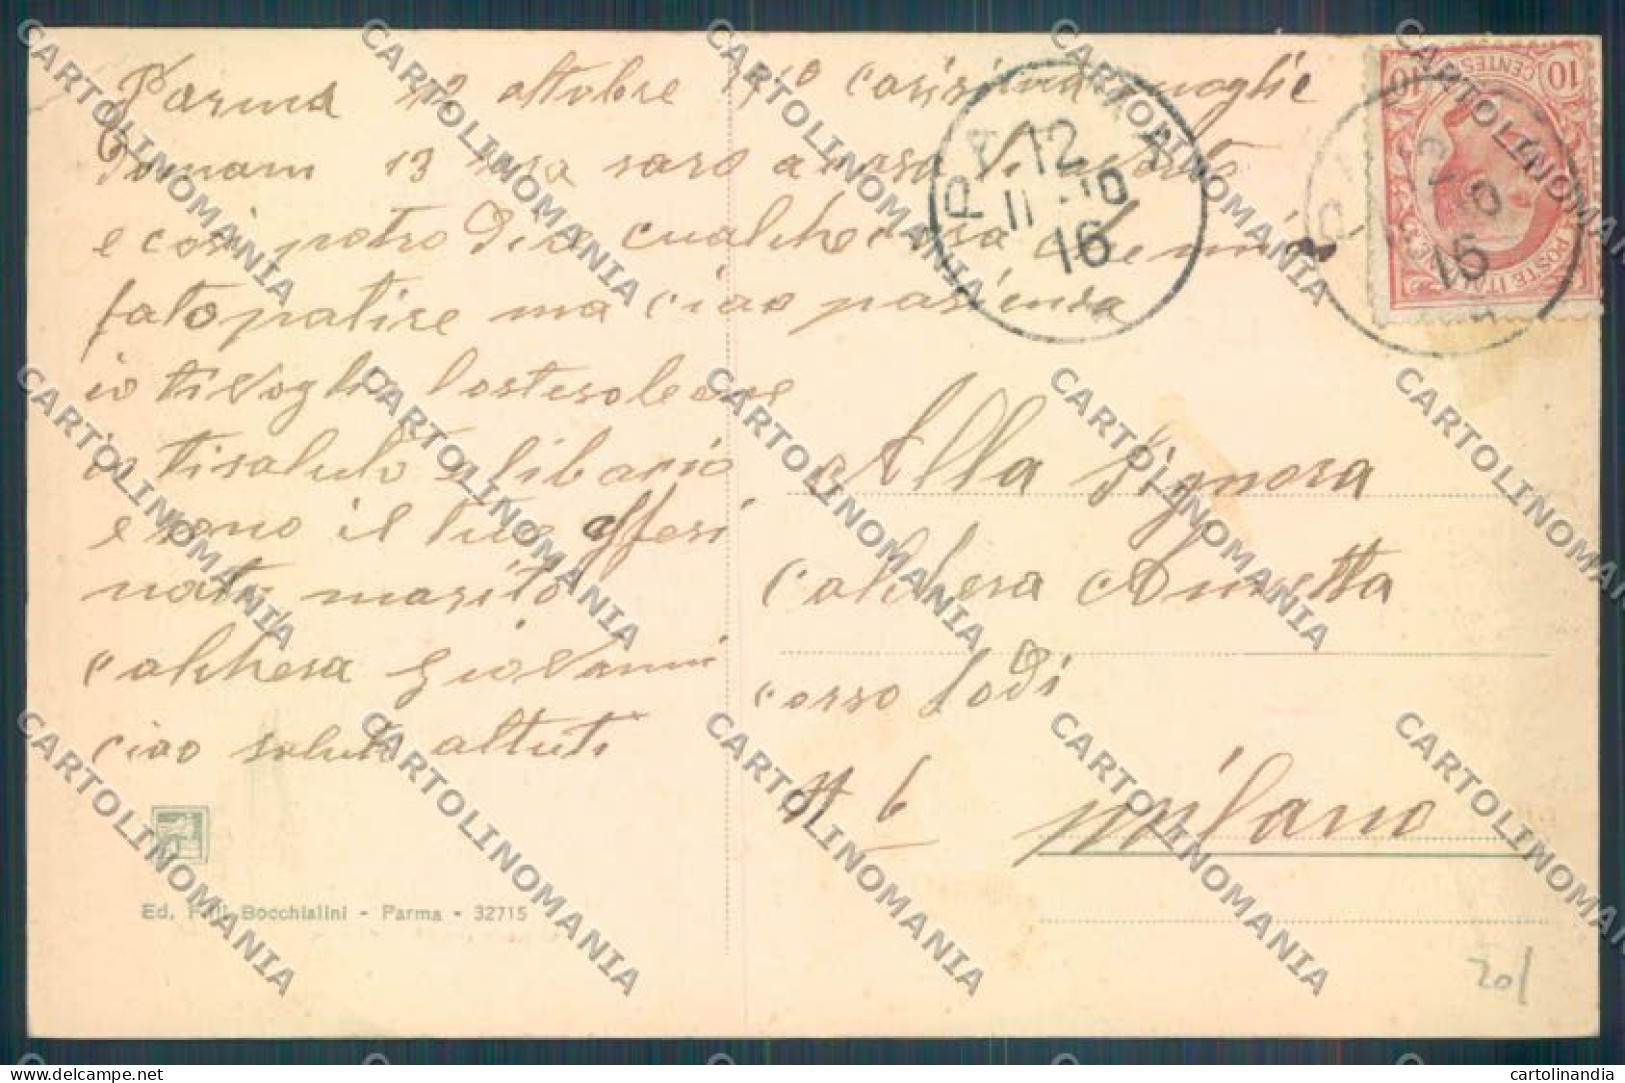 Parma 12 ottobre 1916 carissima moglie
Domani 13 sarò a casa
e così potro Dire cualche cosa che mi
fatopatire ma ciao pasienza
io ti Voglio lostesolo
io tisaluto e tibacio
e sono il tuo affesi
nato marito
Calchera Giovanni
ciao saluti attuti
Alla Signora
Calchera Annetta
corso Lodi
N 6 Milano
PARMA
12
11 -10
16
10
CENTES
POSTE
16
Ed. F.lli Bocchialini - Parma - 32715
201
CARTOLINOMANIA
cartolinandia